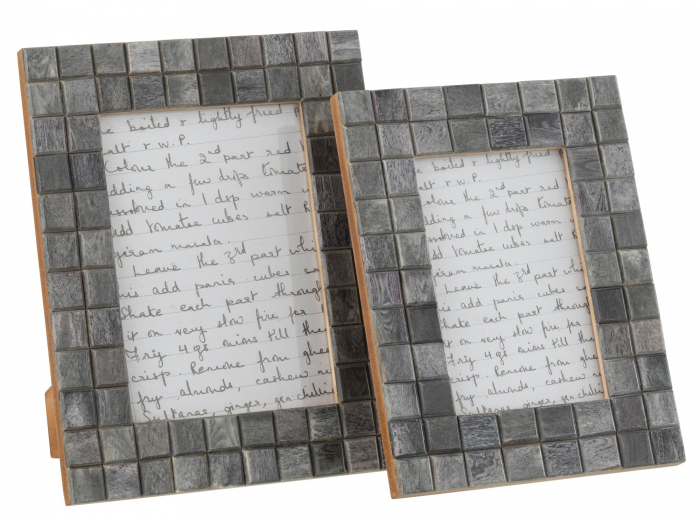 e boiled & lightly fried
alt & w.P.
Colour the 2nd part red
dding a few drops tomato
in 1 dsp warm w
add tomatoe cubes salt
garam masala.
Leave the 3rd part whi
add panir cubes sa
Shake each part through
it on very slow fire for
Fry 4 gs onions till the
crisp. Remove from ghee
fry almonds, cashew nu
Sultanas, ginger, gn chilli
boiled & lightly fried
alt & w.P.
olour the 2nd part red
dding a few drops tomato
in 1 dsp warm
dd tomatoe cubes salt
garam masala.
Leave the 3rd part whi
add panir cubes
Shake each part throug
it on very slow fire for
Fry 4 gs onions till the
crisp. Remove from ghee
fry almonds, cashew nu
Sultanas, ginger, gn chilli